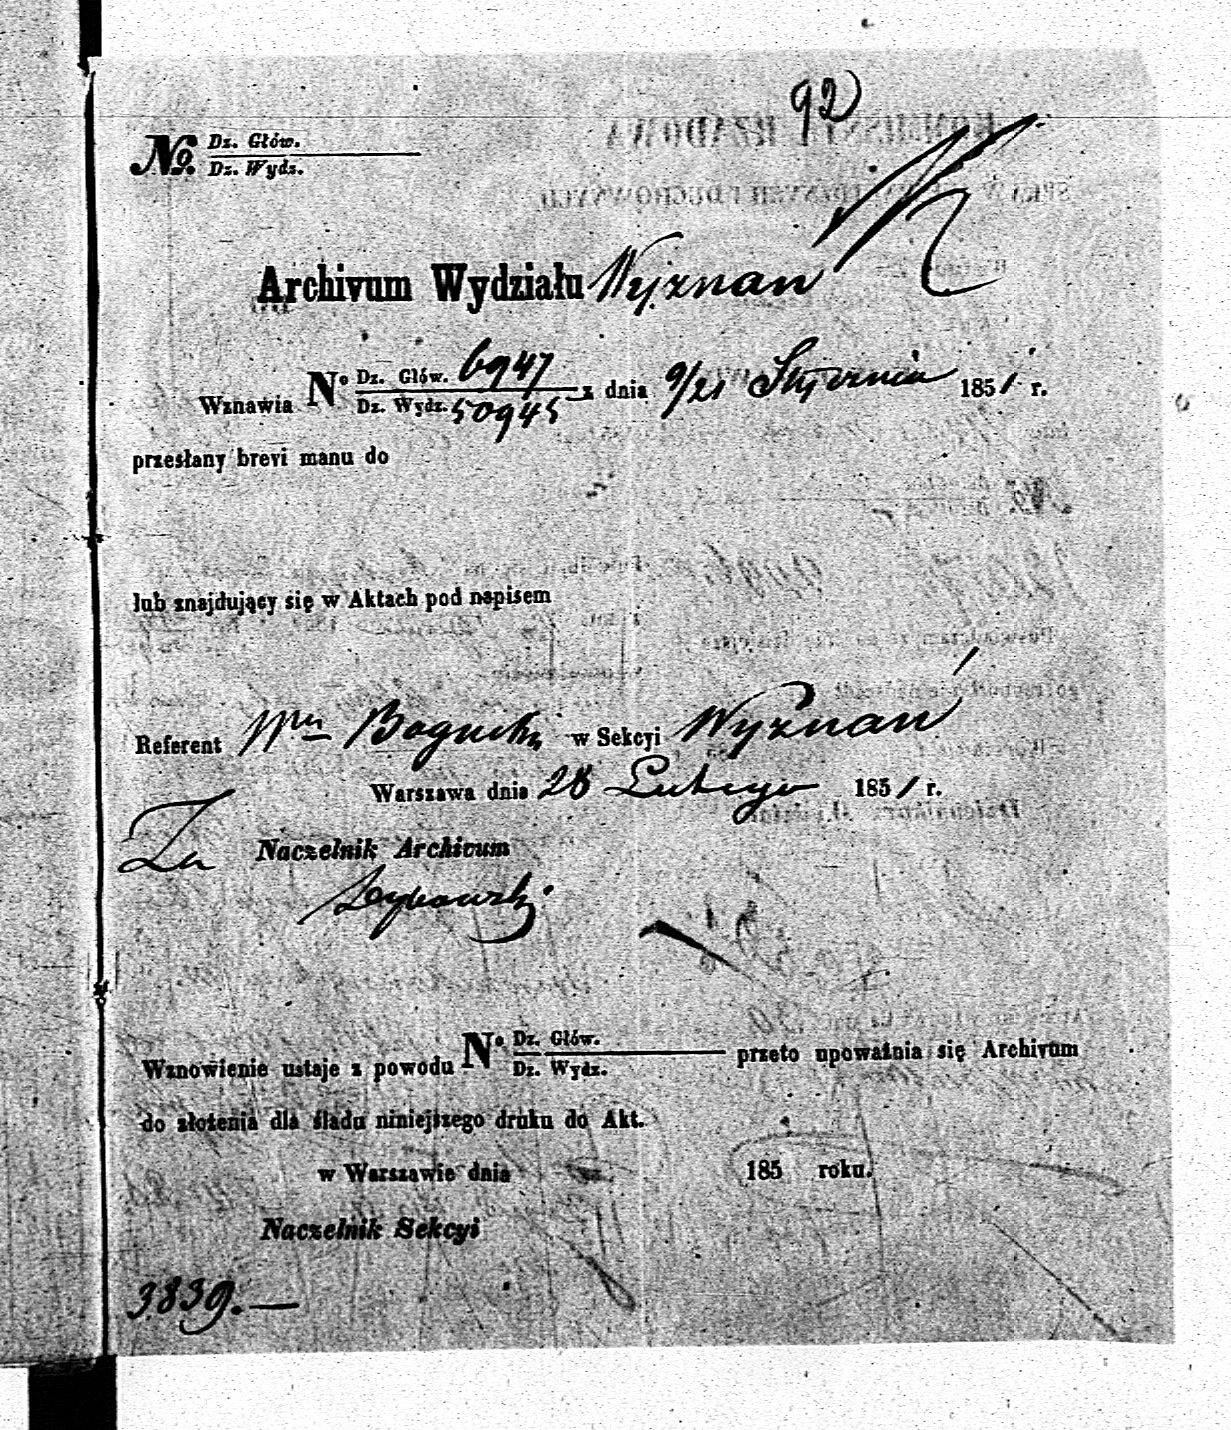 92
No. Dz. Głów.
Dz. Wydz.
Archivum Wydziału Wyznan
Wznawia No Dz. Głów. 6947
Dz. Wydz. 50945 z dnia 9/21 Stycznia 1851 r.
przesłany brevi manu do
lub znajdujący się w Aktach pod napisem
Referent Wny Bogucki w Sekcyi Wyznań
Warszawa dnia 28 Lutego 1851 r.
Za Naczelnik Archivum
Wznowienie ustaje z powodu No Dz. Głów.
Dz. Wydz. przeto upoważnia się Archivum
do złożenia dla śladu niniejszego druku do Akt.
w Warszawie dnia 185 roku.
Naczelnik Sekcyi
3839.—